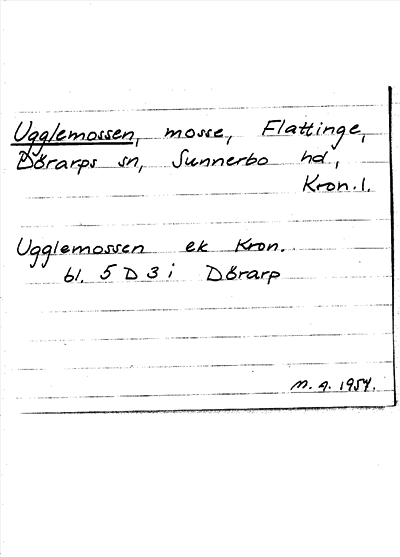 Ugglemossen, mosse, Flattinge,
Dörarps sn, Sunnerbo hd.,
Kron. l.
Ugglemossen ek Kron.
bl. 5 D 3 i Dörarp
m. a. 1954.